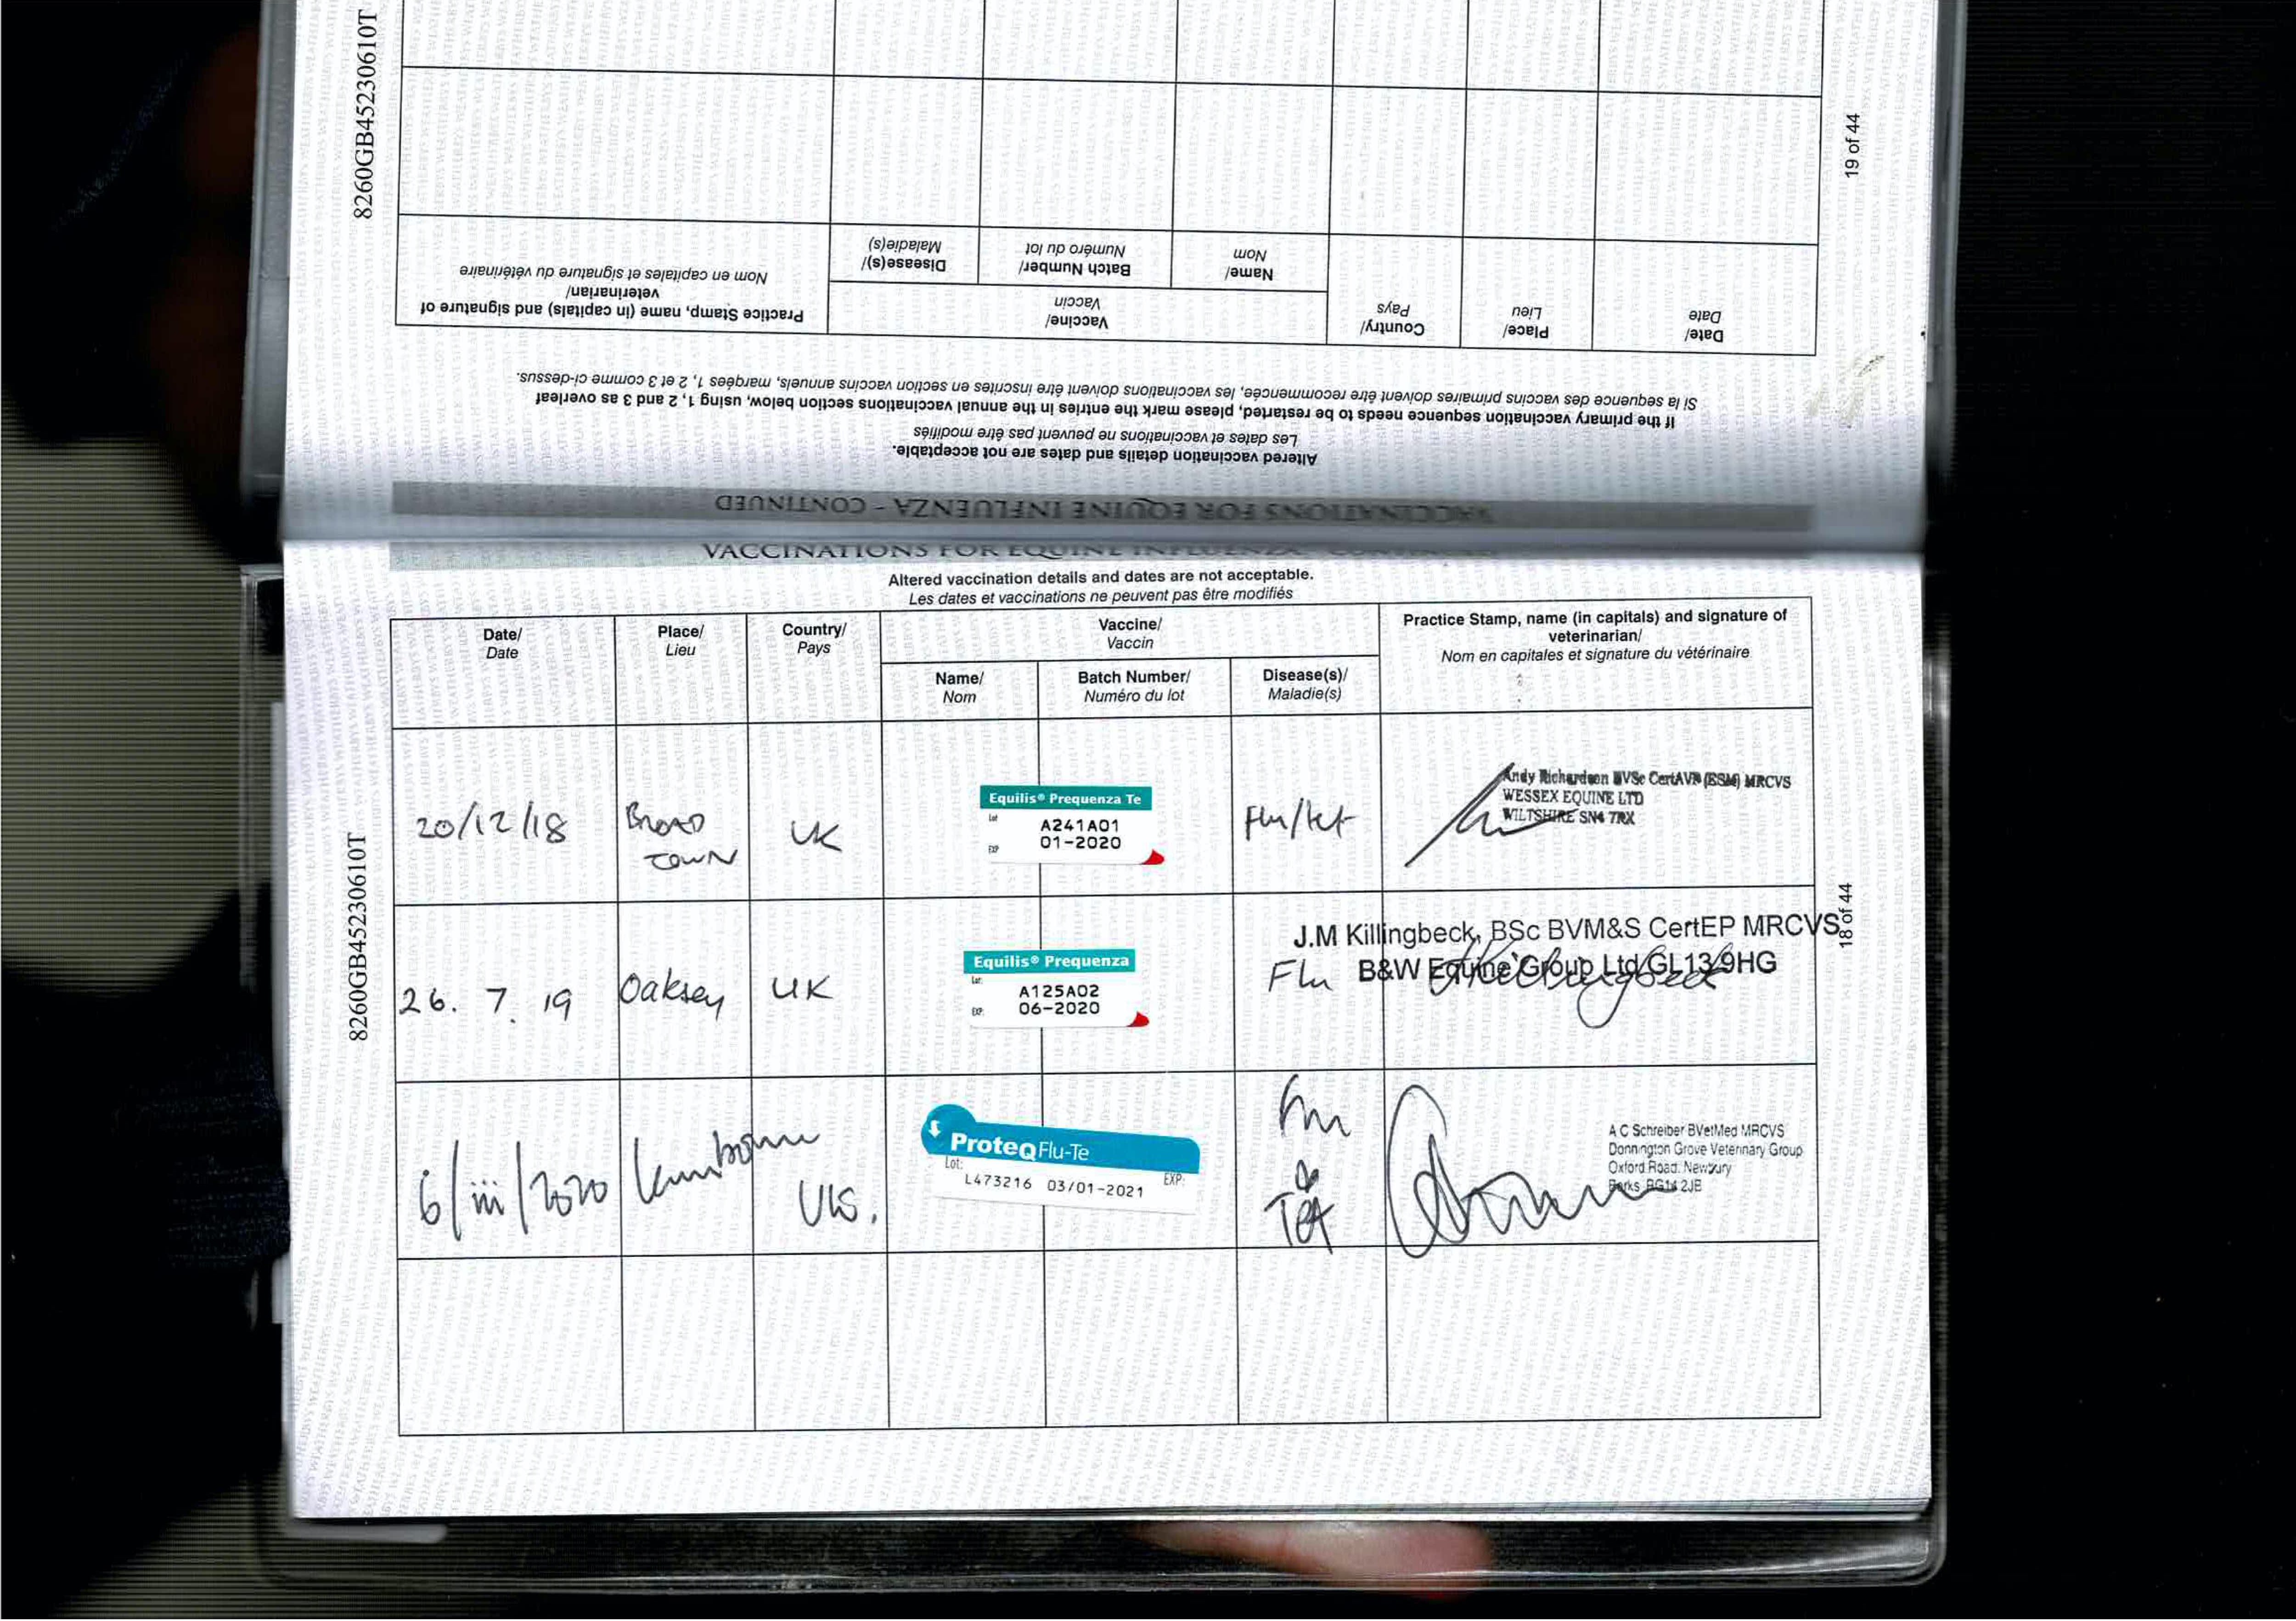 8260GB45230610T
19 of 44
VACCINATIONS FOR EQUINE INFLUENZA - CONTINUED
Altered vaccination details and dates are not acceptable.
Les dates et vaccinations ne peuvent pas être modifiés
If the primary vaccination sequence needs to be restarted, please mark the entries in the annual vaccinations section below, using 1, 2 and 3 as overleaf
Si la sequence des vaccins primaires doivent être recommencée, les vaccinations doivent être inscrites en section vaccins annuels, marquées 1, 2 et 3 comme ci-dessus.
Date/
Date
Place/
Lieu
Country/
Pays
Vaccine/
Vaccin
Name/
Nom
Batch Number/
Numéro du lot
Disease(s)/
Maladie(s)
Practice Stamp, name (in capitals) and signature of
veterinarian/
Nom en capitales et signature du vétérinaire
VACCINATIONS FOR EQUINE INFLUENZA - CONTINUED
Altered vaccination details and dates are not acceptable.
Les dates et vaccinations ne peuvent pas être modifiés
Date/
Date
Place/
Lieu
Country/
Pays
Vaccine/
Vaccin
Name/
Nom
Batch Number/
Numéro du lot
Disease(s)/
Maladie(s)
Practice Stamp, name (in capitals) and signature of
veterinarian/
Nom en capitales et signature du vétérinaire
20/12/18
Broad
Town
UK
Equilis® Prequenza Te
Lot
A241A01
EXP
01-2020
Flu/tet
Andy Richardson BVSc CertAVP (ESM) MRCVS
WESSEX EQUINE LTD
WILTSHIRE SN4 7RX
26. 7. 19
Oaksey
UK
Equilis® Prequenza
Lot:
A125A02
EXP:
06-2020
Flu
J.M Killingbeck, BSc BVM&S CertEP MRCVS
B&W Equine Group Ltd GL13 9HG
6/iii/2020
UK.
ProteqFlu-Te
Lot:
EXP:
L473216 03/01-2021
Flu
&
Tet
A C Schreiber BVetMed MRCVS
Donnington Grove Veterinary Group
Oxford Road. Newbury
Berks RG14 2JB
8260GB45230610T
18 of 44